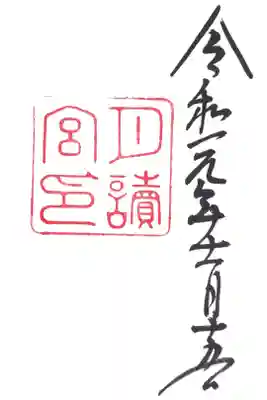 令和元年十一月十五日
月讀
宮印